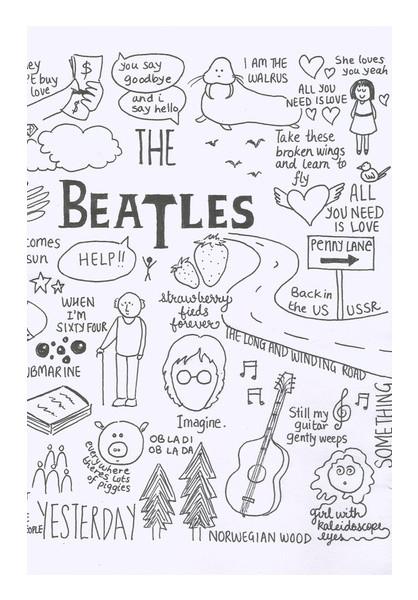 ey
PE buy
love
$
$
you say
goodbye
and i
say hello
I AM THE
WALRUS
She loves
you yeah
ALL YOU
NEED IS LOVE
THE
BEATLES
Take these
broken wings
and learn to
fly
ALL
YOU NEED
IS LOVE
comes
sun
HELP!!
PENNY LANE
Back in
the US
USSR
strawberry
fieds
forever
WHEN
I'M
SIXTY FOUR
THE LONG AND WINDING ROAD
UBMARINE
Imagine.
SOMETHING
Still my
guitar
gently weeps
everywhere
theres lots
of piggies
OB LA DI
OB LA DA
girl with
kaleidoscope
eyes
OPLE
YESTERDAY
NORWEGIAN WOOD